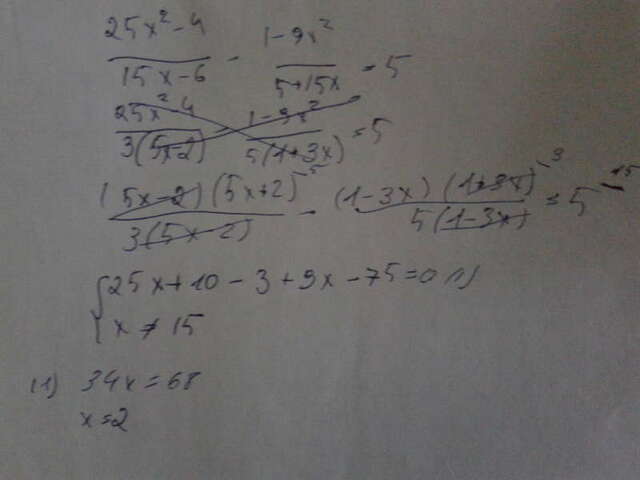 25x² - 4 / 15x - 6 - 1 - 9x² / 5 + 15x = 5
25x² - 4 / 3(5x - 2) - 1 - 9x² / 5(1 + 3x) = 5
(5x - 2)(5x + 2) ⁵ / 3(5x - 2) - (1 - 3x)(1 + 3x) ³ / 5(1 - 3x) = 5 ¹⁵
{ 25x + 10 - 3 + 9x - 75 = 0 (1)
x ≠ 15
(1) 34x = 68
x = 2